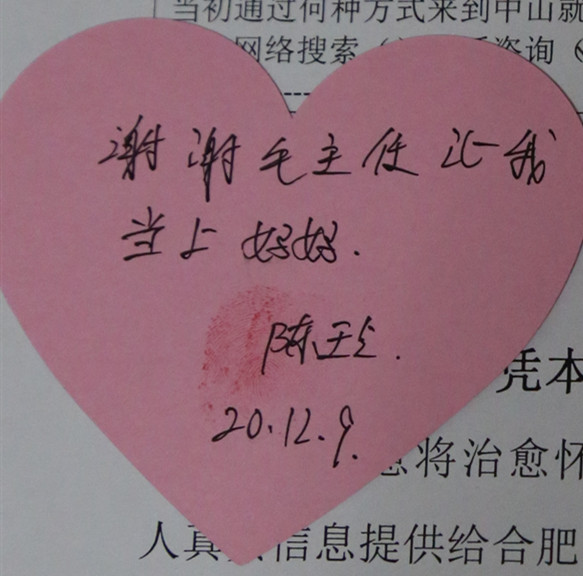 当初通过何种方式来到中山就
网络搜索
咨询
谢谢毛主任让我
当上妈妈.
陈
20.12.9.
凭本
将治愈怀
人真
信息提供给合肥